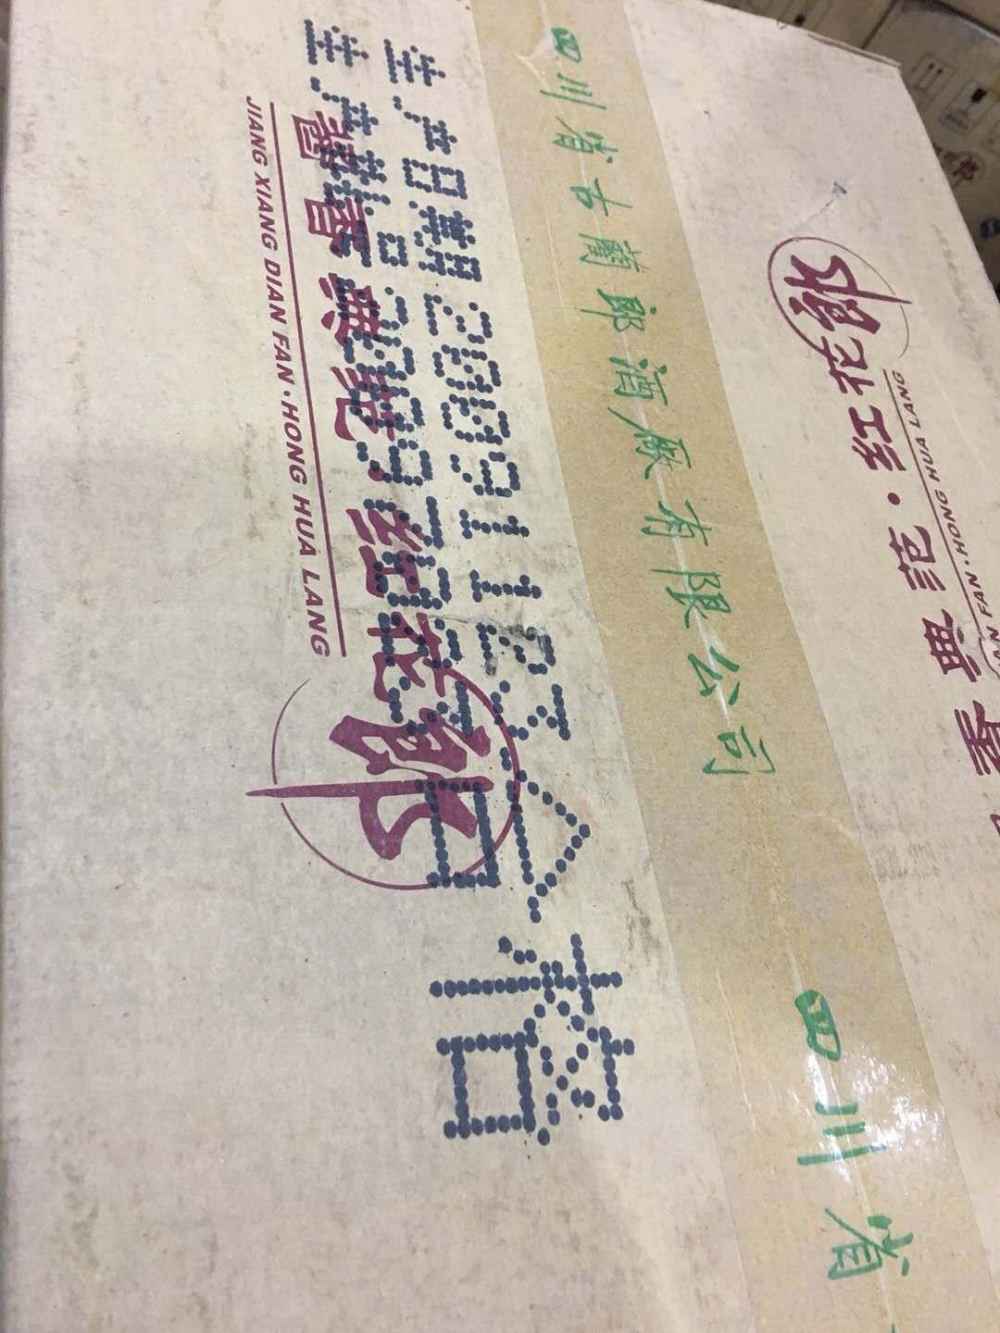 香典范·红花郎
AN FAN·HONG HUA LANG
四川省古蔺郎酒厰有限公司 四川省
生产日期
合格
生产批号
酱香典范·红花郎
JIANG XIANG DIAN FAN·HONG HUA LANG